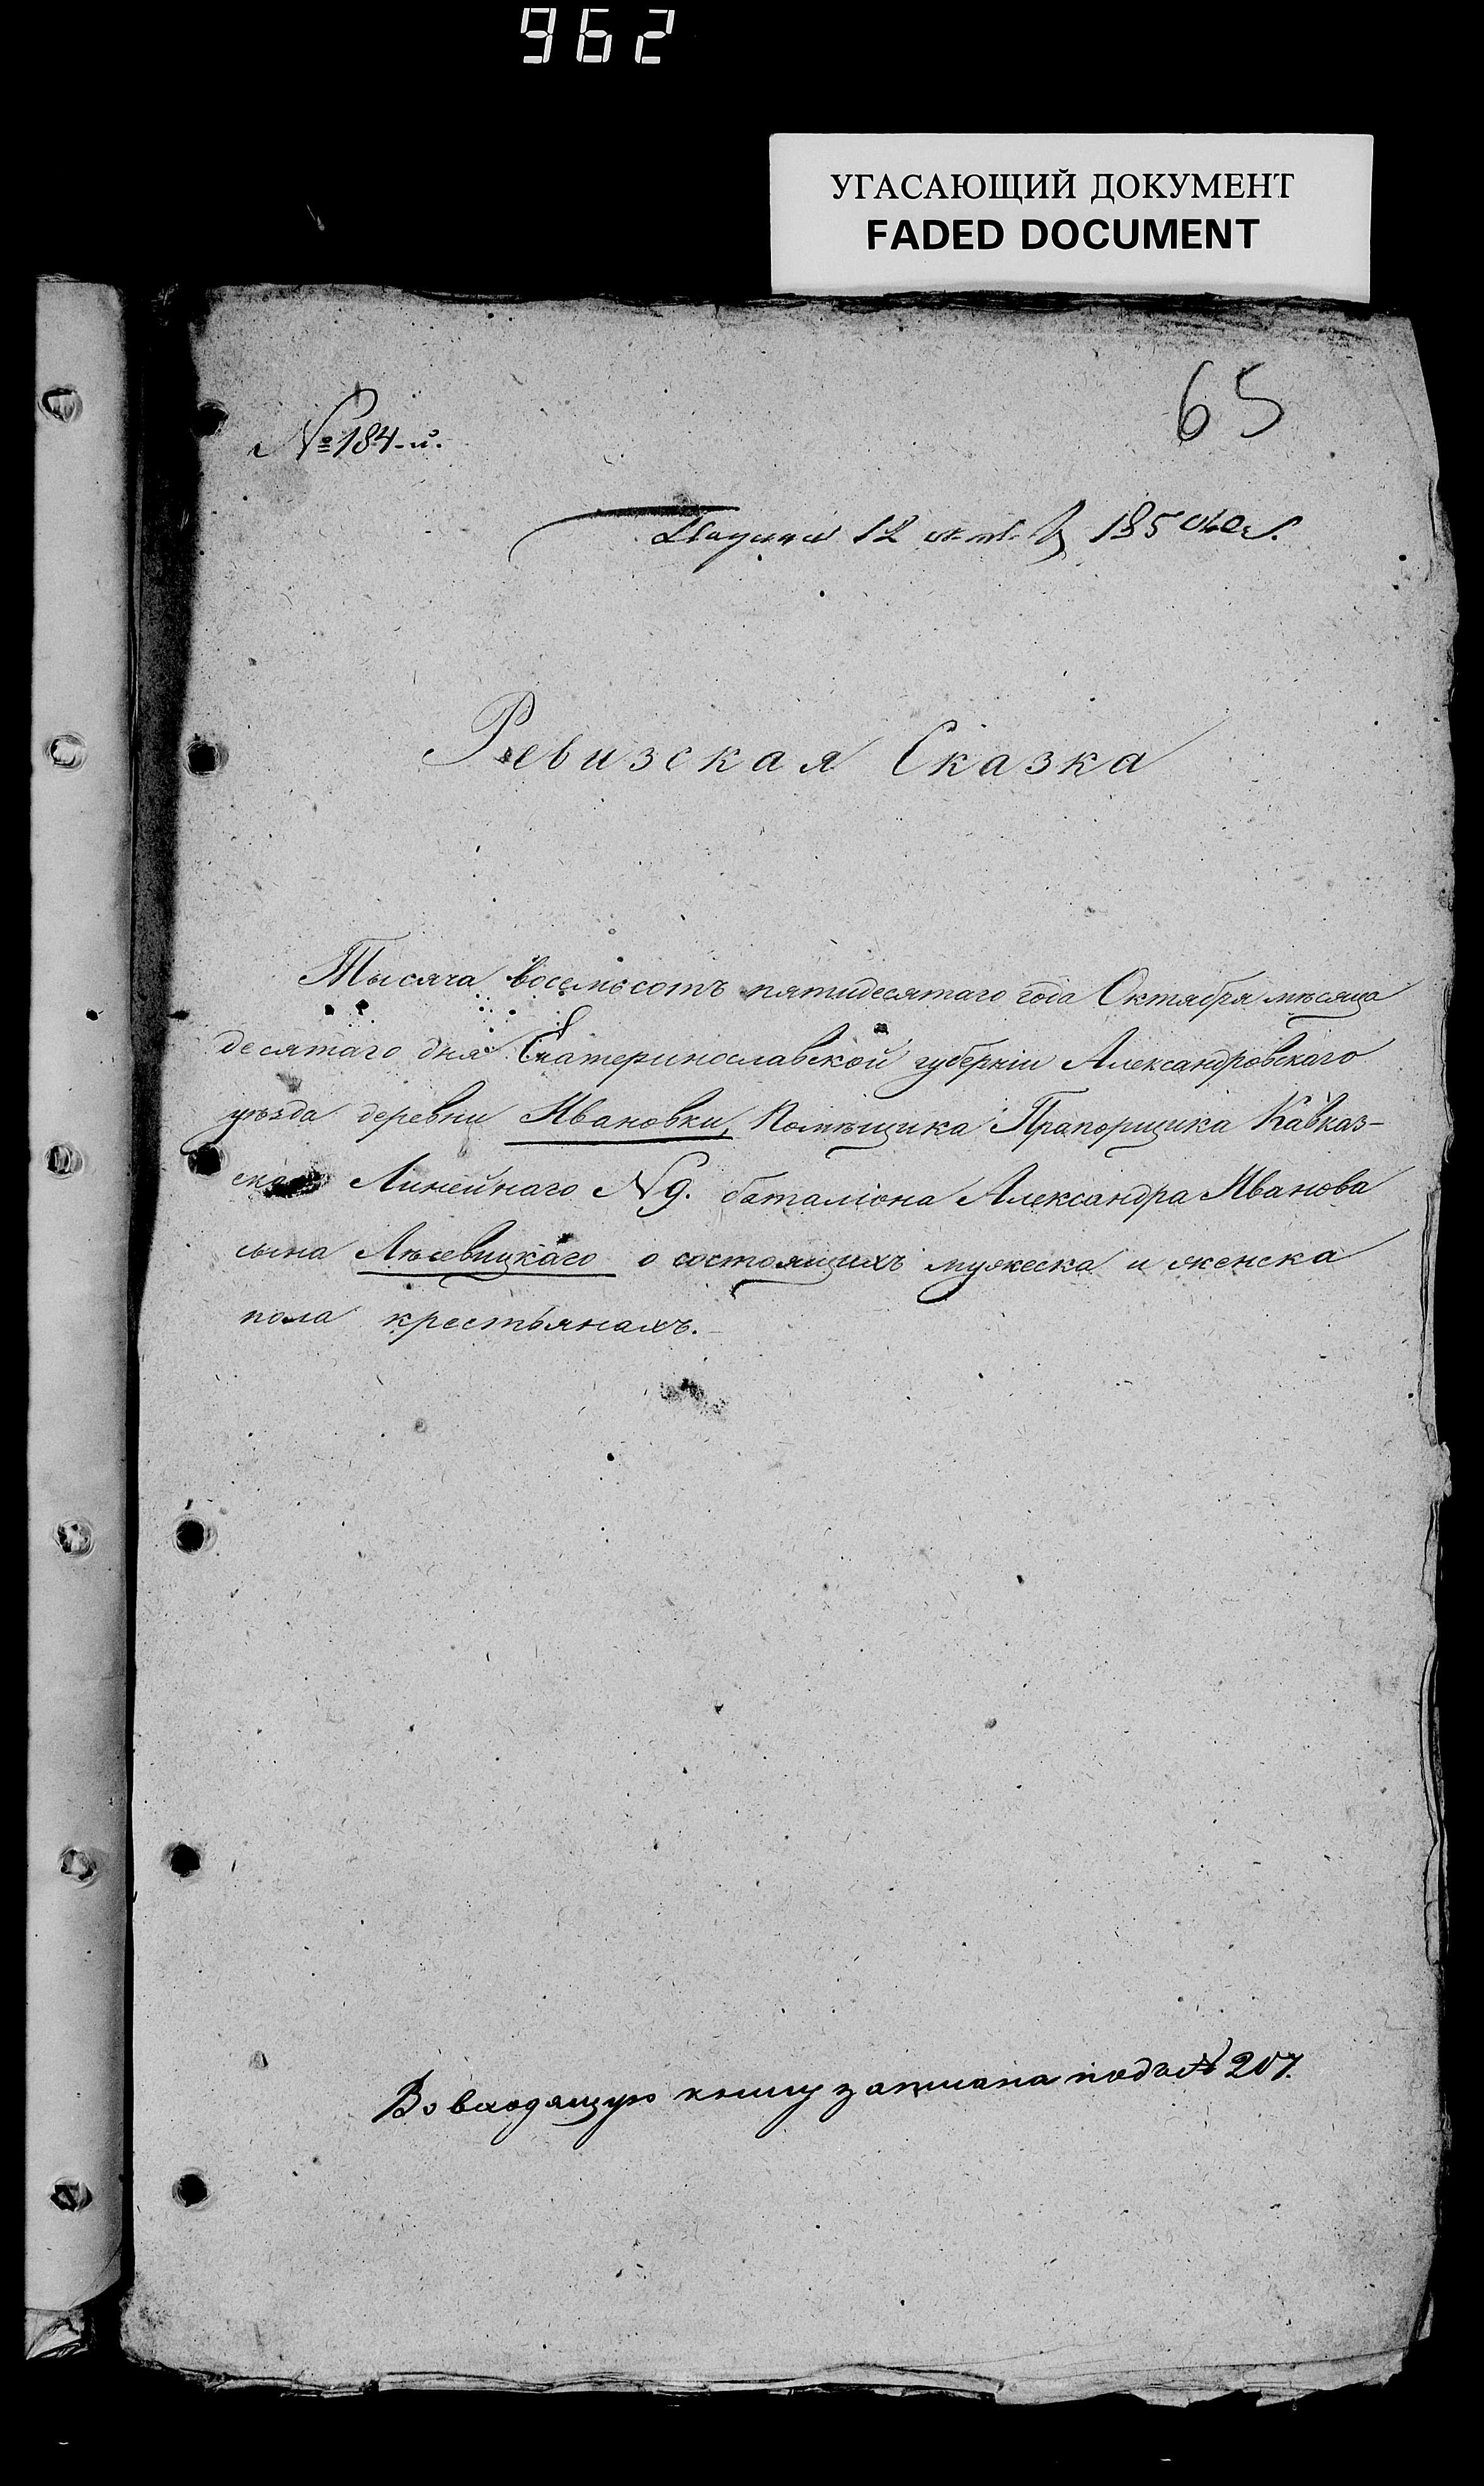 962
УГАСАЮЩИЙ ДОКУМЕНТ
FADED DOCUMENT
65
№ 184-й.
12 1850 
Ревизская Сказка
Тысяча восемьсотъ пятидесятаго года Октября мѣсяца
десятаго дня Екатеринославской губерніи Александровскаго
уѣзда деревни Ивановки, Помѣщика Прапорщика Кавказ-
скаго Линейнаго N 9. баталіона Александра Иванова
сына о состоящихъ мужеска и женска
пола крестьянахъ.
Во входящую книгу записана подъ № 207.